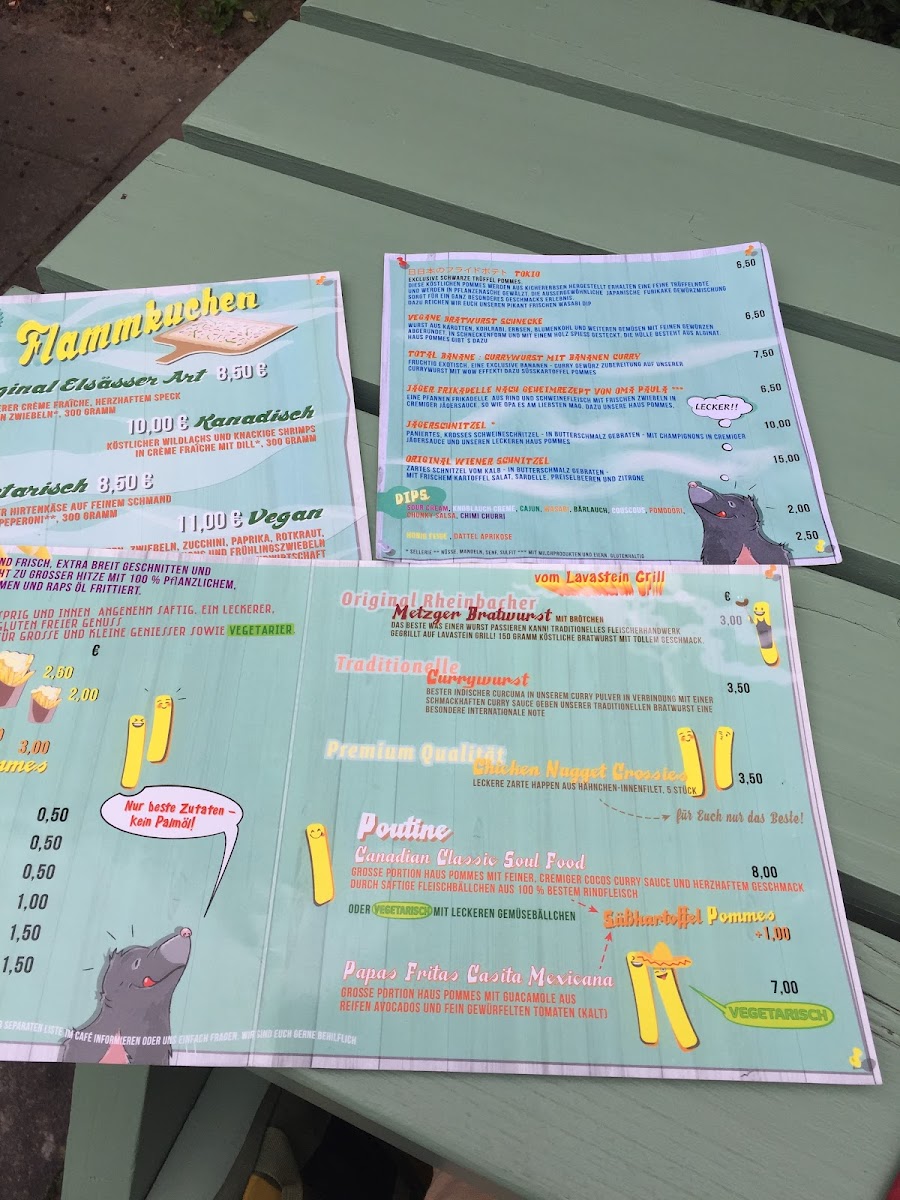 Flammkuchen
ginal Elsässer Art 8,50 €
ERER CRÈME FRAÎCHE, HERZHAFTEM SPECK
N ZWIEBELN*, 300 GRAMM
10,00 € Kanadisch
KÖSTLICHER WILDLACHS UND KNACKIGE SHRIMPS
IN CRÈME FRAÎCHE MIT DILL*, 300 GRAMM
tarisch 8,50 €
ER HIRTENKÄSE AUF FEINEM SCHMAND
PEPERONI**, 300 GRAMM
11,00 € Vegan
ZWIEBELN, ZUCCHINI, PAPRIKA, ROTKRAUT,
UND FRÜHLINGSZWIEBELN
TOKIO 6,50
EXCLUSIVE SCHWARZE TRÜFFEL POMMES.
DIESE KÖSTLICHEN POMMES WERDEN AUS KICHERERBSEN HERGESTELLT ERHALTEN EINE FEINE TRÜFFELNOTE
UND WERDEN IN PFLANZENASCHE GEWÄLZT. DIE AUSSERGEWÖHNLICHE JAPANISCHE FURIKAKE GEWÜRZMISCHUNG
SORGT FÜR EIN GANZ BESONDERES GESCHMACKS ERLEBNIS.
DAZU REICHEN WIR EUCH UNSEREN PIKANT FRISCHEN WASABI DIP
VEGANE BRATWURST SCHNECKE 6,50
WURST AUS KAROTTEN, KOHLRABI, ERBSEN, BLUMENKOHL UND WEITEREN GEMÜSEN MIT FEINEN GEWÜRZEN
ABGERÜNDET. IN SCHNECKENFORM UND MIT EINEM HOLZ SPIESS GESTECKT. DIE HÜLLE BESTEHT AUS ALGINAT.
HAUS POMMES GIBT´S DAZU
TOTAL BANANE : CURRYWURST MIT BANANEN CURRY 7,50
FRUCHTIG EXOTISCH. EINE EXCLUSIVE BANANEN - CURRY GEWÜRZ ZUBEREITUNG AUF UNSERER
CURRYWURST MIT WOW EFFEKT! DAZU SÜSSKARTOFFEL POMMES
JÄGER FRIKADELLE NACH GEHEIMREZEPT VON OMA PAULA *** 6,50
EINE PFANNEN FRIKADELLE AUS RIND UND SCHWEINEFLEISCH MIT FRISCHEN ZWIEBELN IN
CREMIGER JÄGERSAUCE, SO WIE OPA ES AM LIEBSTEN MAG. DAZU UNSERE HAUS POMMES.
LECKER!!
JÄGERSCHNITZEL * 10,00
PANIERTES, KROSSES SCHWEINESCHNITZEL - IN BUTTERSCHMALZ GEBRATEN - MIT CHAMPIGNONS IN CREMIGER
JÄGERSAUCE UND UNSEREN LECKEREN HAUS POMMES
ORIGINAL WIENER SCHNITZEL 15,00
ZARTES SCHNITZEL VOM KALB - IN BUTTERSCHMALZ GEBRATEN -
MIT FRISCHEM KARTOFFEL SALAT, SARDELLE, PREISELBEEREN UND ZITRONE
DIPS
SOUR CREAM, KNOBLAUCH CREME, CAJUN, WASABI, BÄRLAUCH, COUSCOUS, POMODORI, 2,00
CHUNKY SALSA, CHIMI CHURRI
HONIG FEIGE, DATTEL APRIKOSE 2,50
* SELLERIE ** NÜSSE, MANDELN, SENF, SULFIT *** MIT MILCHPRODUKTEN UND EIERN, GLUTENHALTIG
ND FRISCH, EXTRA BREIT GESCHNITTEN UND
HT ZU GROSSER HITZE MIT 100 % PFLANZLICHEM,
MEN UND RAPS ÖL FRITTIERT.
PRIG UND INNEN ANGENEHM SAFTIG. EIN LECKERER,
GLUTEN FREIER GENUSS
ÜR GROSSE UND KLEINE GENIESSER SOWIE VEGETARIER
€
2,60
2,00
3,00
mmes
0,50
0,50
0,50
1,00
1,50
1,50
Nur beste Zutaten –
kein Palmöl!
S SEPARATEN LISTE IM CAFÉ INFORMIEREN ODER UNS EINFACH FRAGEN. WIR SIND EUCH GERNE BEHILFLICH
vom Lavastein Grill
€
Original Rheinbacher
Metzger Bratwurst MIT BRÖTCHEN 3,00
DAS BESTE WAS EINER WURST PASSIEREN KANN! TRADITIONELLES FLEISCHERHANDWERK
GEGRILLT AUF LAVASTEIN GRILL! 150 GRAMM KÖSTLICHE BRATWURST MIT TOLLEM GESCHMACK.
Traditionelle
Currywurst 3,50
BESTER INDISCHER CURCUMA IN UNSEREM CURRY PULVER IN VERBINDUNG MIT EINER
SCHMACKHAFTEN CURRY SAUCE GEBEN UNSERER TRADITIONELLEN BRATWURST EINE
BESONDERE INTERNATIONALE NOTE
Premium Qualität
Chicken Nugget Crossies 3,50
LECKERE ZARTE HAPPEN AUS HÄHNCHEN-INNENFILET, 5 STÜCK
für Euch nur das Beste!
Poutine
Canadian Classic Soul Food 8,00
GROSSE PORTION HAUS POMMES MIT FEINER, CREMIGER COCOS CURRY SAUCE UND HERZHAFTEM GESCHMACK
DURCH SAFTIGE FLEISCHBÄLLCHEN AUS 100 % BESTEM RINDFLEISCH
ODER VEGETARISCH MIT LECKEREN GEMÜSEBÄLLCHEN
Süßkartoffel Pommes
+1,00
Papas Fritas Casita Mexicana 7,00
GROSSE PORTION HAUS POMMES MIT GUACAMOLE AUS
REIFEN AVOCADOS UND FEIN GEWÜRFELTEN TOMATEN (KALT)
VEGETARISCH